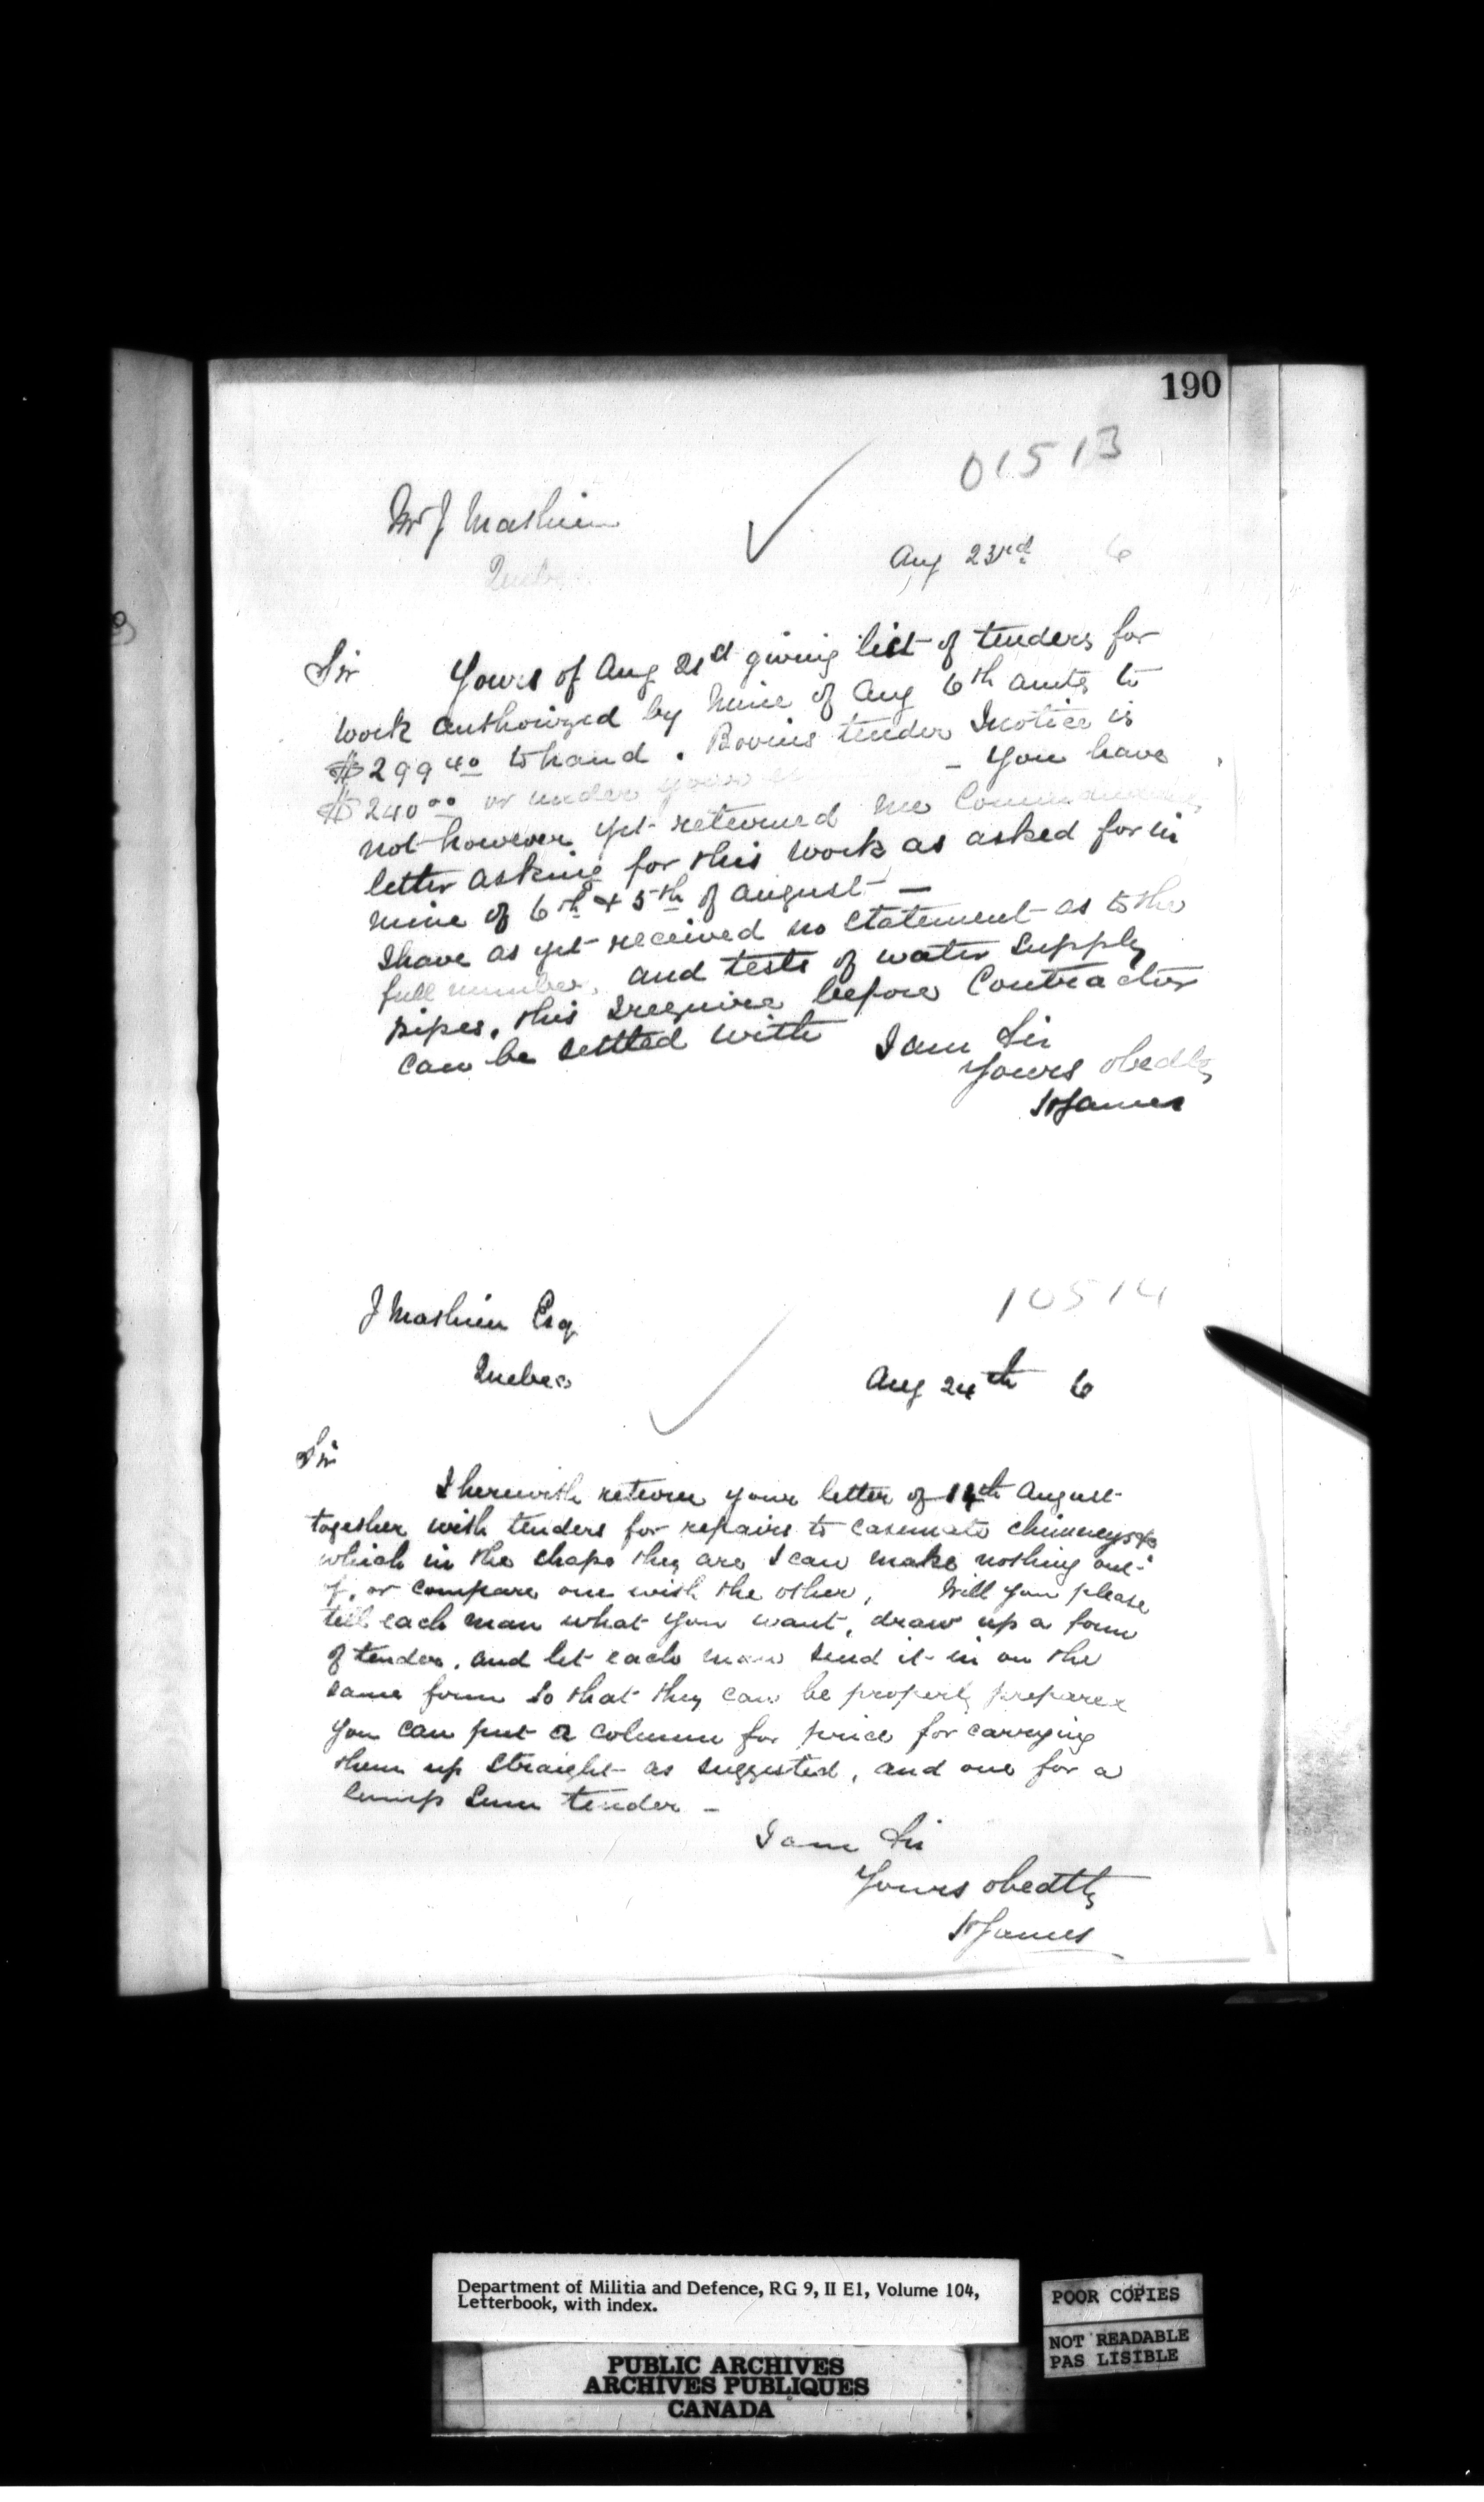 190
01513
Mr J Mathieu
Quebec
Aug 23rd 6
Sir Yours of Aug 21st giving list of tenders for
work authorized by mine of Aug 6th amtg to
$299 40 to hand. tender I notice is
$240 00 or under yours - You have
not however yet returned me
letter asking for this work as asked for in
mine of 6th & 5th of August -
I have as yet received no statement as to the
full number, and tests of water supply
pipes. this I require before Contractor
can be settled with
I am Sir
Yours obedtly
H James
10514
J Mathieu Esq
Quebec
Aug 24th 6
Sir
I herewith return your letter of 14th August
together with tenders for repairs to casemate chimneys &c
which in the shape they are I can make nothing out
of, or compare one with the other, Will you please
tell each man what you want, draw up a form
of tender, and let each man send it in on the
same form so that they can be properly prepared
you can put a column for price for carrying
them up straight as suggested, and one for a
lump sum tender -
I am Sir
Yours obedtly
H James
Department of Militia and Defence, RG 9, II E1, Volume 104,
Letterbook, with index.
POOR COPIES
NOT READABLE
PAS LISIBLE
PUBLIC ARCHIVES
ARCHIVES PUBLIQUES
CANADA